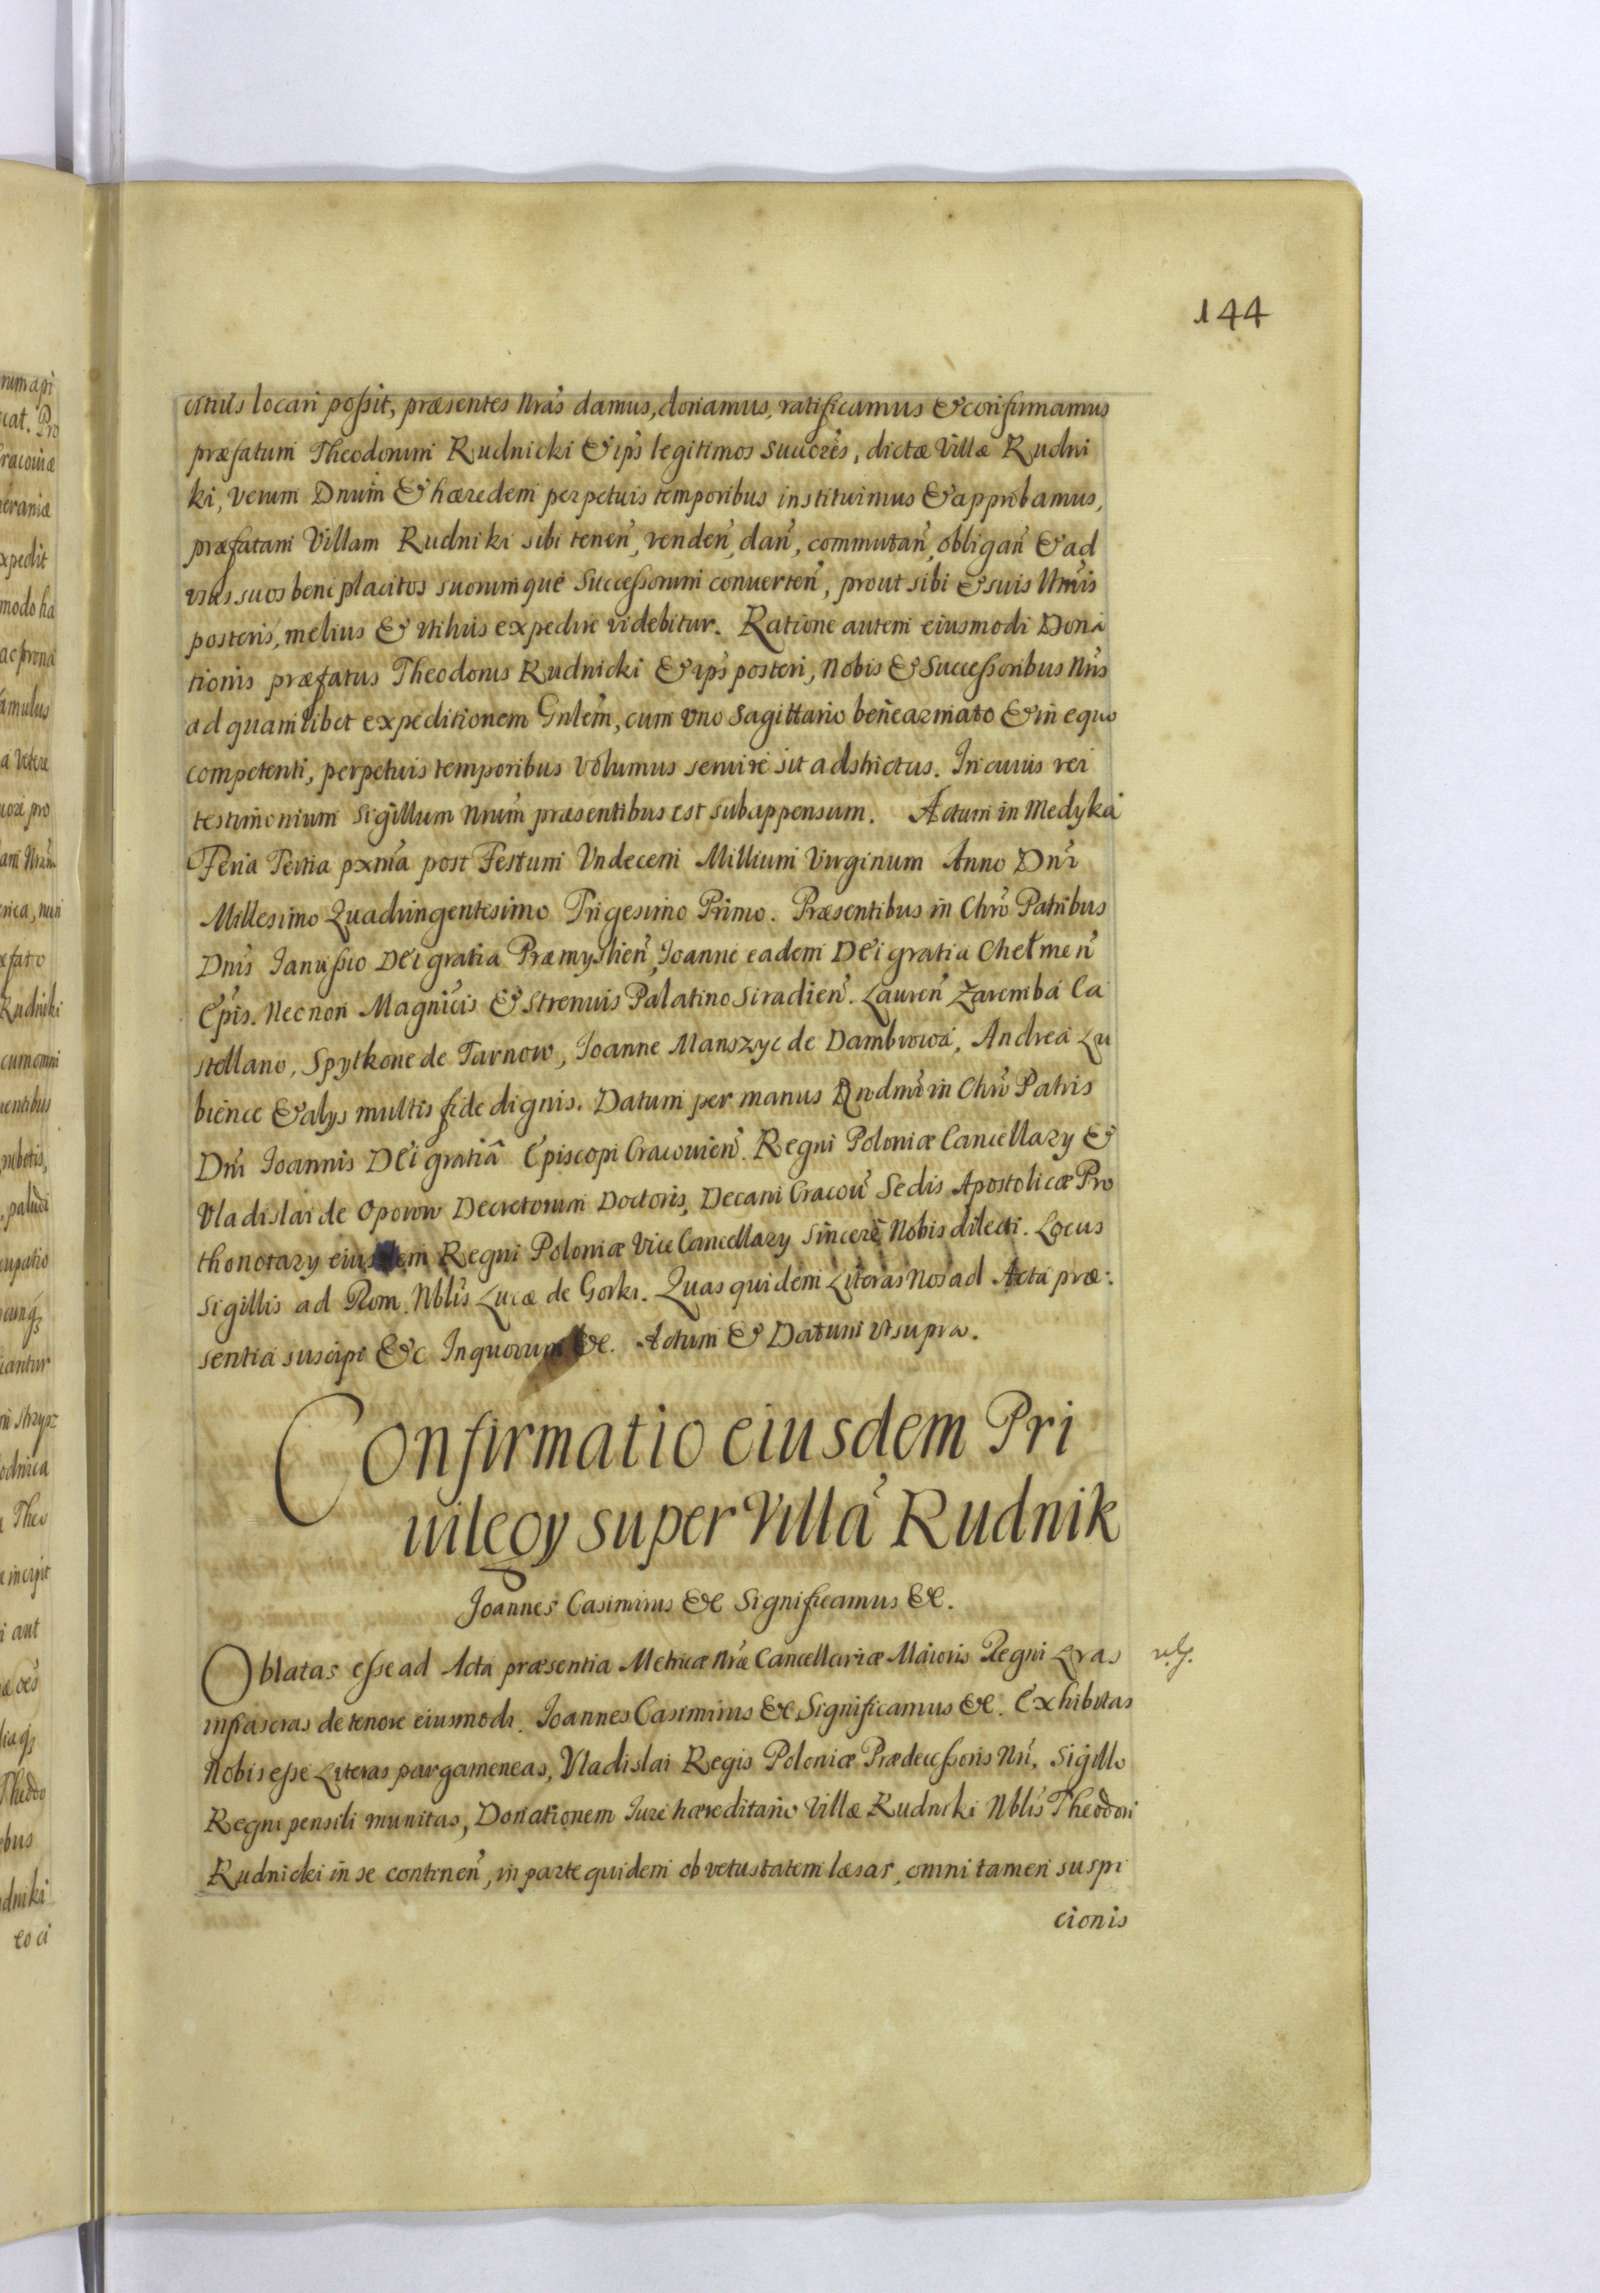 144
citius locari possit, præsentes Nrãs damus, donamus, ratificamus & confirmamus
præfatum Theodorum Rudnicki & ips̃ legitimos Succorẽs, dictæ Villæ Rudni
ki, verum Dnum̃ & hæredem perpetuis temporibus instituimus & approbamus,
præfatam Villam Rudniki sibi teneñ, vendeñ, dañ, commutañ, obligañ & ad
usus suos beneplacitos suorumque Successorum converteñ, prout sibi & suis
posteris, melius & utilius expedire videbitur. Ratione autem eiusmodi Dona
tionis præfatus Theodorus Rudnicki & ips̃ posteri, Nobis & Successoribus Nrĩs
ad quamlibet expeditionem Gnlem̃, cum uno Sagittario bene armato & in equo
competenti, perpetuis temporibus volumus servire sit adstrictus. In cuius rei
testimonium Sigillum Nrum̃ præsentibus est subappensum. Actum in Medyka
Feria Tertia pxmã post Festum Undecem Millium Virginum Anno Dnĩ
Millesimo Quadringentesimo Trigesimo Primo. Præsentibus in Chrõ Patribus
Dnĩs Janussio Dei gratia Præmyslieñ, Joanne eadem Dei gratia Chełmeñ
Epĩs. Necnon Magnĩcis & Strenuis Palatino Siradieñ. Laureñ Zaremba Ca
stellano, Spytkone de Tarnow, Joanne Manszyc de Dambrowa, Andrea Lu
bience & alys multis fide dignis. Datum per manus Rndmĩ in Chrõ Patris
Dnĩ Joannis Dei gratiâ Episcopi Cracovieñ. Regni Poloniæ Cancellary &
Vladislai de Oporow Decretorum Doctoris, Decani Cracov̄ Sedis Apostolicæ Pro
thonotary eiusdem Regni Poloniæ Vice Cancellary sincere Nobis dilecti. Locus
Sigillis ad Rom. Nblĩs Lucæ de Gorki. Quas quidem Literas Nos ad Acta præ:
sentia suscipi &c In quorum &c. Actum & Datum ut supra.
Confirmatio eiusdem Pri
uilegy super Villã Rudnik
Joannes Casimirus &c Significamus &c.
Oblatas esse ad Acta præsentia Metricæ Nræ Cancellariæ Maioris Regni Lrãs
infrascras de tenore eiusmodi. Joannes Casimirus &c Significamus &c. Exhibitas
Nobis esse Literas pargameneas, Vladislai Regis Poloniæ Prædecessoris Nrĩ, Sigillo
Regni pensili munitas, Donationem Jure hæreditario Villæ Rudniki Nblĩs Theodori
Rudnicki in se contineñ, in parte quidem ob vetustatem læsas, omni tamen suspi
cionis